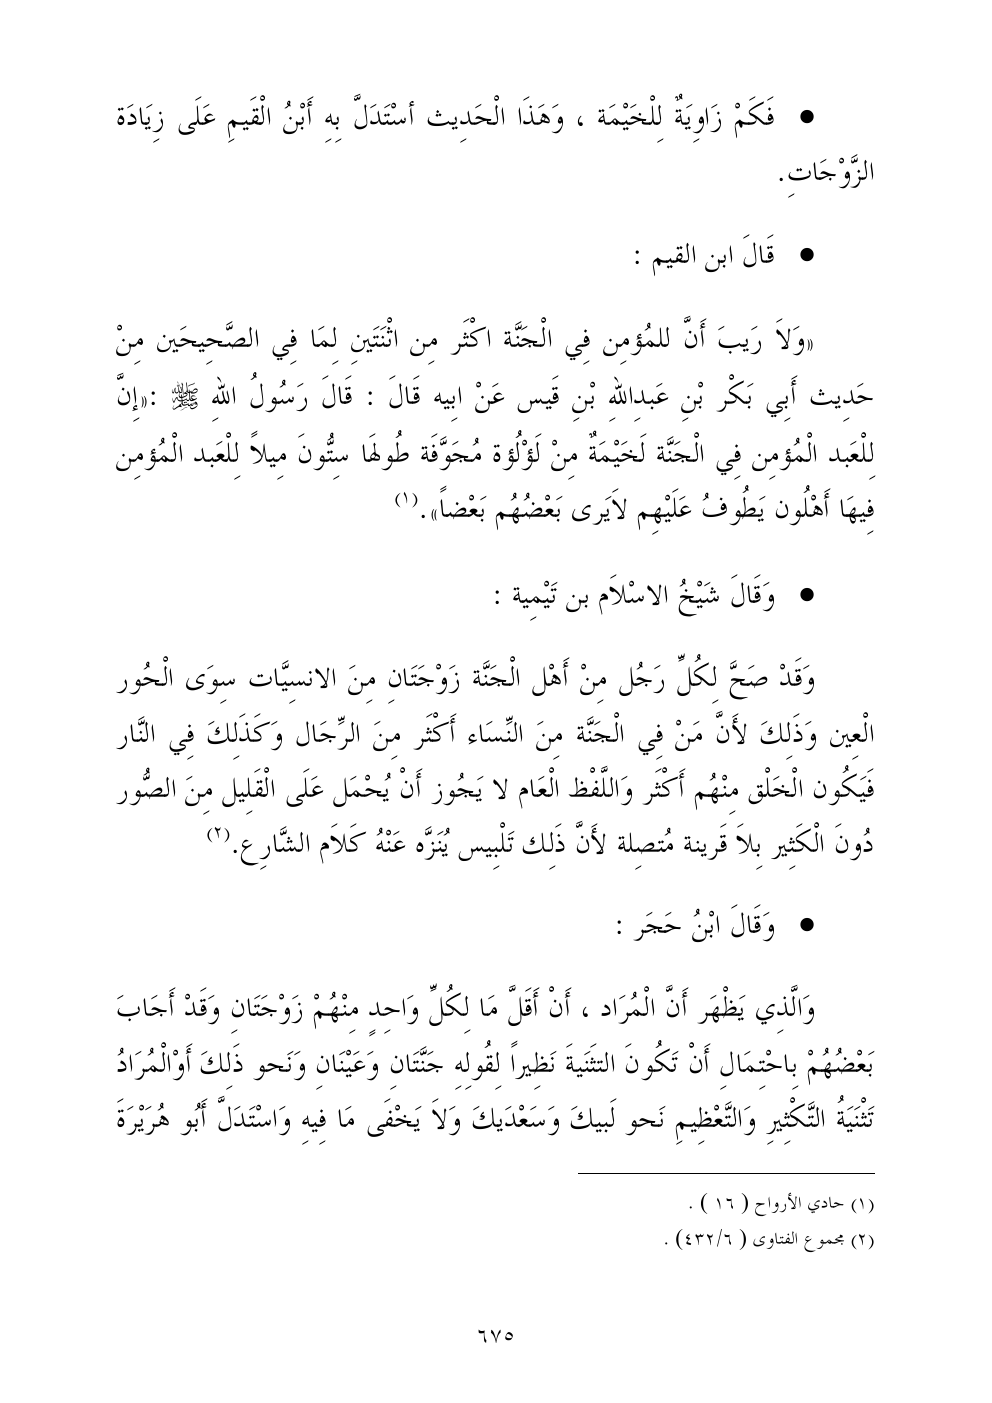 ● فَكَمْ زَاوِيَةٌ لِلْخَيْمَة ، وَهَذَا الْحَدِيث أسْتَدَلَّ بِهِ أَبْنُ الْقَيمِ عَلَى زِيَادَة
الزَّوْجَاتِ.
● قَالَ ابن القيم :
«وَلاَ رَيبَ أَنَّ للمُؤمِن فِي الْجَنَّة اكْثَر مِن اثْنَتَينِ لِمَا فِي الصَّحِيحَين مِنْ
حَدِيث أَبِي بَكْر بْنِ عَبدِاللهِ بْنِ قَيس عَنْ ابِيه قَالَ : قَالَ رَسُولُ اللهِ ﷺ :«إنَّ
لِلْعَبد الْمُؤمِن فِي الْجَنَّة لَخَيْمَةٌ مِنْ لَوْلُؤة مُجَوَّفَة طُولهَا سِتُّونَ مِيلاً لِلْعَبد الْمُؤمِن
فِيهَا أَهْلُون يَطُوفُ عَلَيْهِم لاَيَرى بَعْضُهُم بَعْضاً».(١)
● وَقَالَ شَيْخُ الاسْلاَم بن تَيْمِية :
وَقَدْ صَحَّ لِكُلِّ رَجُل مِنْ أَهْل الْجَنَّة زَوْجَتَانِ مِنَ الانسِيَّات سِوَى الْحُور
الْعِين وَذَلِكَ لأَنَّ مَنْ فِي الْجَنَّة مِنَ النِّسَاء أَكْثَر مِنَ الرِّجَال وَكَذَلِكَ فِي النَّار
فَيَكُون الْخَلْق مِنْهُم أَكْثَر وَاللَّفْظ الْعَام لا يَجُوز أَنْ يُحْمَل عَلَى الْقَلِيل مِنَ الصُّور
دُونَ الْكَثِير بِلاَ قَرينة مُتصِلة لأَنَّ ذَلِك تَلْبِيس يُنَزَّه عَنْهُ كَلاَم الشَّارِع.(٢)
● وَقَالَ ابْنُ حَجَر :
وَالَّذِي يَظْهَر أَنَّ الْمُرَاد ، أَنْ أَقَلَّ مَا لِكُلِّ وَاحِدٍ مِنْهُمْ زَوْجَتَانِ وَقَدْ أَجَابَ
بَعْضُهُمْ بِاحْتِمَالِ أَنْ تَكُونَ التثَنَيةَ نَظِيراً لِقُولِهِ جَنَّتَانِ وَعَيْنَانِ وَنَحو ذَلِكَ أَوْالْمُرَادُ
تَثْنَيَةُ التَّكْثِيرِ وَالتَّعْظِيمِ نَحو لَبيكَ وَسَعْدَيكَ وَلاَ يَخْفَى مَا فِيهِ وَاسْتَدَلَّ أَبُو هُرَيْرَةَ
(١) حادي الأرواح ( ١٦ ) .
(٢) مجموع الفتاوى ( ٤٣٢/٦) .
٦٧٥